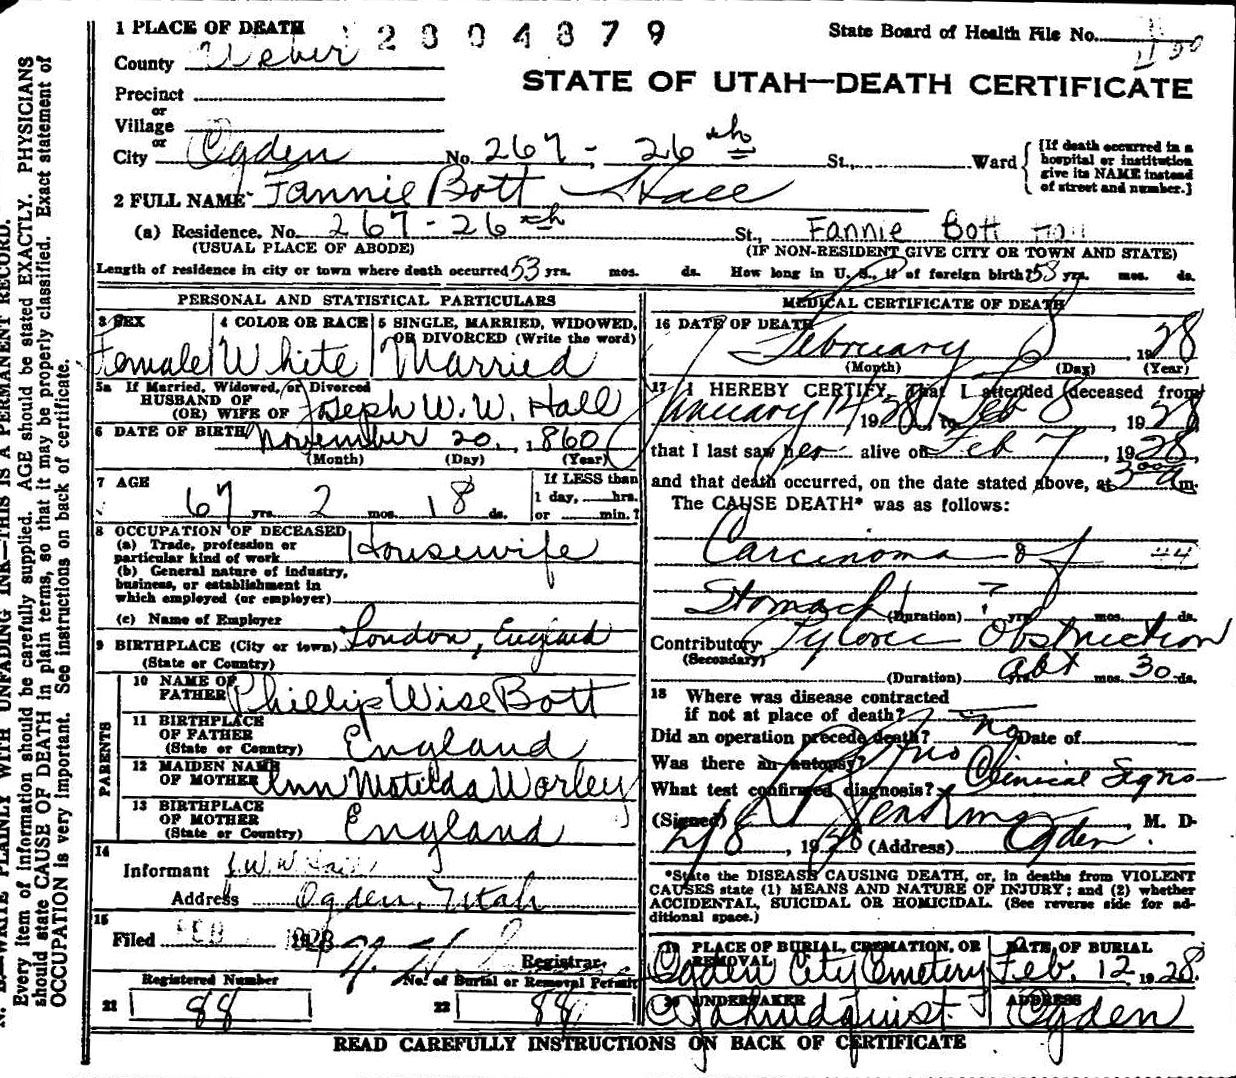 1 PLACE OF DEATH 2804879 State Board of Health File No.
County Weber
STATE OF UTAH—DEATH CERTIFICATE
Precinct
or
Village
or
City Ogden No. 267 - 26th St., Ward {[If death occurred in a hospital or institution give its NAME instead of street and number.]
2 FULL NAME Fannie Bott Hall
(a) Residence. No. 267 - 26th St., Fannie Bott Hall
(USUAL PLACE OF ABODE) (IF NON-RESIDENT GIVE CITY OR TOWN AND STATE)
Length of residence in city or town where death occurred 53 yrs. mos. ds. How long in U. S., if of foreign birth? 53 yrs. mos. ds.
PERSONAL AND STATISTICAL PARTICULARS
3 SEX 4 COLOR OR RACE 5 SINGLE, MARRIED, WIDOWED, OR DIVORCED (Write the word)
Female White Married
5a If Married, Widowed, or Divorced
HUSBAND OF
(OR) WIFE OF Joseph W. W. Hall
6 DATE OF BIRTH November 20, 1860
(Month) (Day) (Year)
7 AGE If LESS than
67 yrs. 2 mos. 18 ds. 1 day, hrs.
or min.?
8 OCCUPATION OF DECEASED
(a) Trade, profession or
particular kind of work Housewife
(b) General nature of industry,
business, or establishment in
which employed (or employer)
(c) Name of Employer
9 BIRTHPLACE (City or town) London, England
(State or Country)
PARENTS
10 NAME OF
FATHER Phillip Wise Bott
11 BIRTHPLACE
OF FATHER England
(State or Country)
12 MAIDEN NAME
OF MOTHER Ann Motilda Worley
13 BIRTHPLACE
OF MOTHER England
(State or Country)
14
Informant J.W.W. Hall
Address Ogden, Utah
15
Filed FEB 1928
Registrar.
Registered Number No. of Burial or Removal Permit
21 88 22 88
MEDICAL CERTIFICATE OF DEATH
16 DATE OF DEATH
February 8, 1928
(Month) (Day) (Year)
17 I HEREBY CERTIFY, That I attended deceased from
January 14 1928, to Feb 8, 1928
that I last saw her alive on Feb 7, 1928,
and that death occurred, on the date stated above, at 3:00 a m.
The CAUSE DEATH* was as follows:
Carcinoma of 44
Stomach (Duration) ? yrs. mos. ds.
Contributory Pyloric Obstruction
(Secondary)
(Duration) abt yrs. mos. 30 ds.
18 Where was disease contracted
if not at place of death?
Did an operation precede death? no Date of
Was there an autopsy? no
What test confirmed diagnosis? Clinical Signs
(Signed) M. D.
2/8, 1928 (Address) Ogden.
*State the DISEASE CAUSING DEATH, or, in deaths from VIOLENT
CAUSES state (1) MEANS AND NATURE OF INJURY; and (2) whether
ACCIDENTAL, SUICIDAL OR HOMICIDAL. (See reverse side for ad-
ditional space.)
19 PLACE OF BURIAL, CREMATION, OR REMOVAL DATE OF BURIAL
Ogden City Cemetery Feb. 12 1928.
20 UNDERTAKER ADDRESS
Ogden
READ CAREFULLY INSTRUCTIONS ON BACK OF CERTIFICATE
N. B.—WRITE PLAINLY WITH UNFADING INK—THIS IS A PERMANENT RECORD.
Every item of information should be carefully supplied. AGE should be stated EXACTLY. PHYSICIANS
should state CAUSE OF DEATH in plain terms, so that it may be properly classified. Exact statement of
OCCUPATION is very important. See instructions on back of certificate.